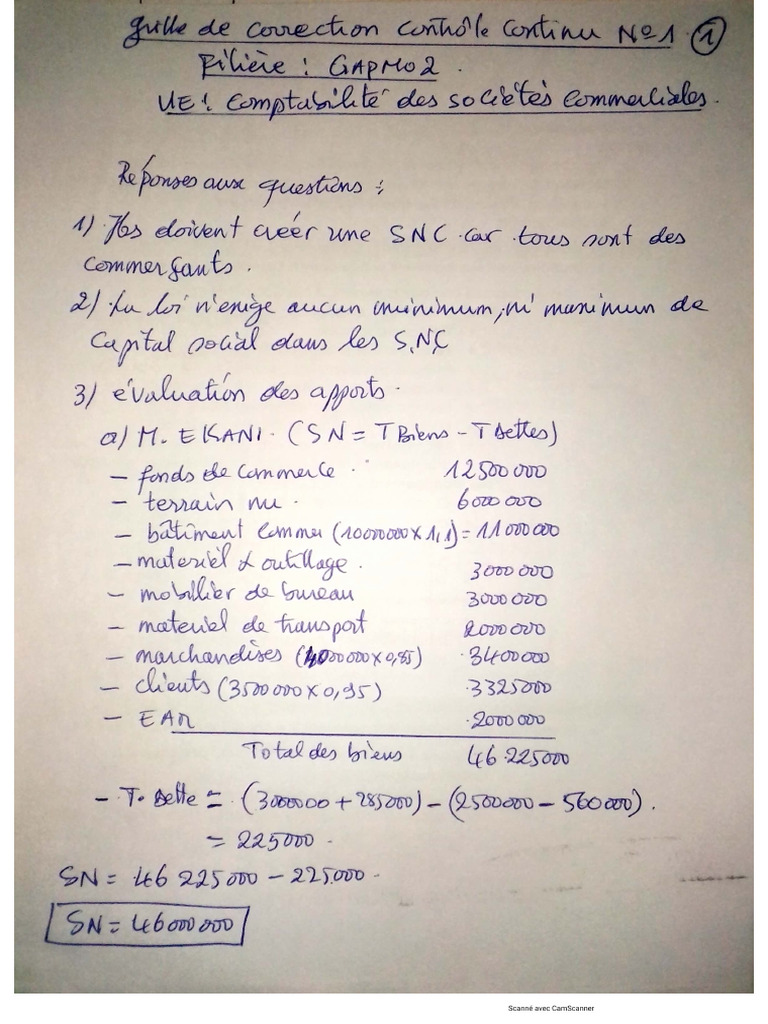 grille de correction contrôle continu N°1 1
Filière : GAPMO2.
UE : Comptabilité des sociétés commerciales.
Réponses aux questions :
1) Ils doivent créer une SNC car tous sont des
commerçants.
2) La loi n'exige aucun minimum, ni maximum de
Capital social dans les S.N.C
3) évaluation des apports.
a) M. EKANI. (SN = T Biens - T Dettes)
- fonds de commerce. 12500 000
- terrain nu. 6000 000
- bâtiment commer (10000000 x 1,1) = 11 000 000
- materiel & outillage. 3000 000
- mobilier de bureau 3000 000
- materiel de transport 2000 000
- marchandises (4000000 x 0,85) 3400 000
- clients (3500 000 x 0,95) 3325 000
- EAR 2000 000
Total des biens 46 225 000
- T. Dette = (3000000 + 285000) - (2500 000 - 560 000).
= 225000.
SN = 46 225 000 - 225.000.
SN = 46 000 000
Scanné avec CamScanner